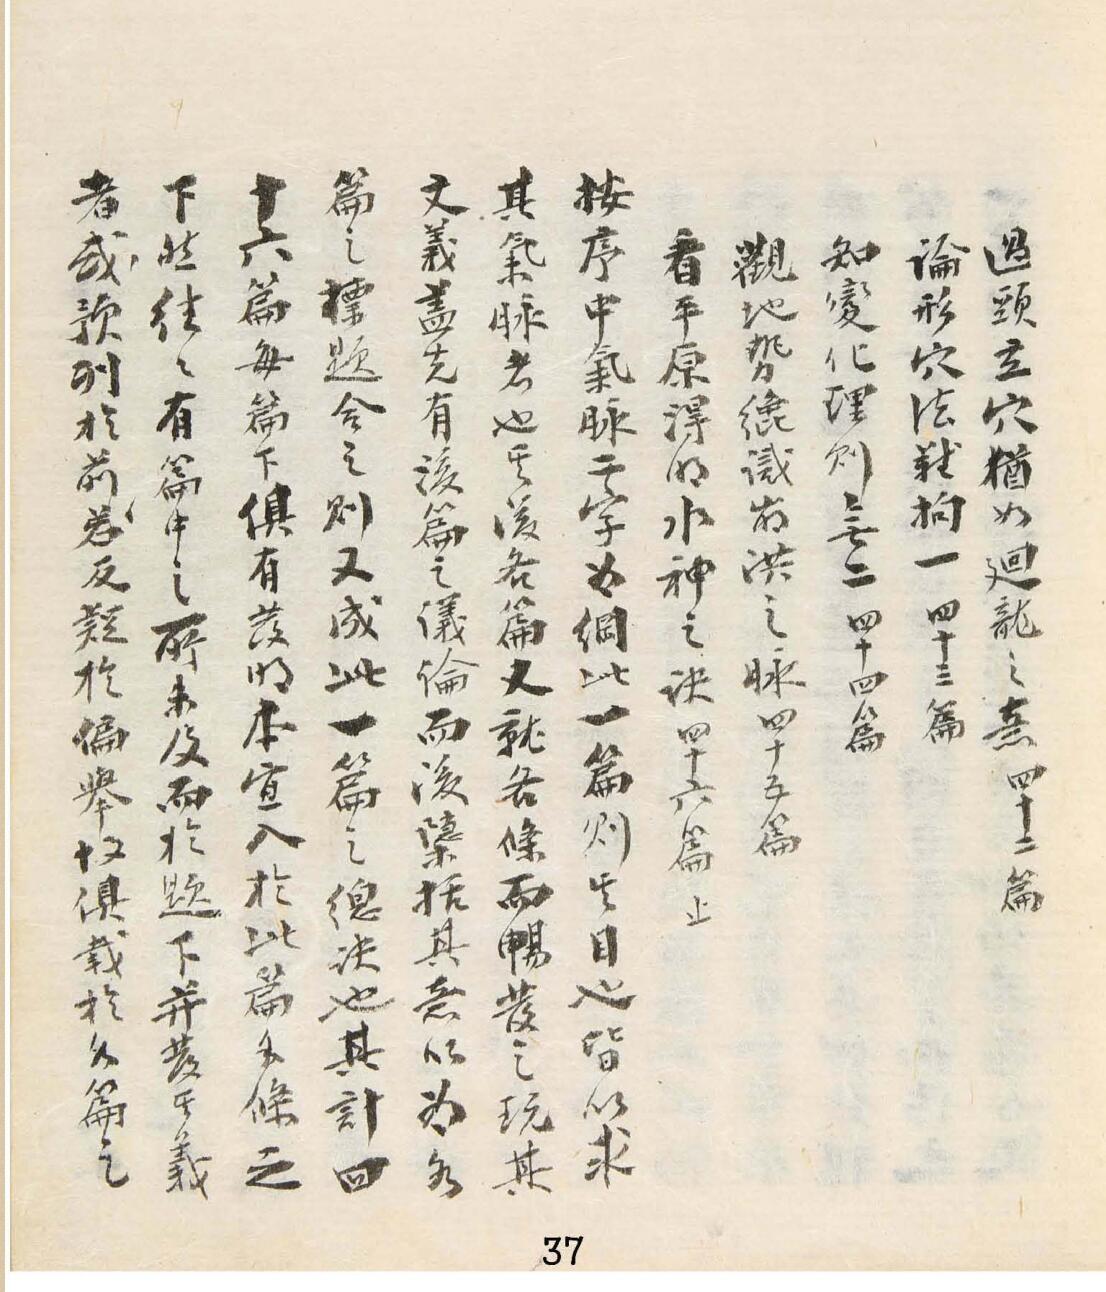 過頸立穴猶如迴龍之意 四十二篇
論形穴法難拘一 四十三篇
知變化理則無二 四十四篇
觀地勢纔識崩洪之脉 四十五篇
看平原得明水神之訣 四十六篇 止
按序中氣脉二字為綱此一篇則其目也皆以求
其氣脉者也其後各篇又就各條而暢發之玩其
文義盖先有後篇之儀倫而後檃括其意以為各
篇之標題合之則又成此一篇之總訣也其計四
十六篇每篇下俱有發明本宜入於此篇各條之
下然往々有篇中之所未及而於題下并發其義
者或預列於前恐反疑於偏舉故俱載於各篇之
37